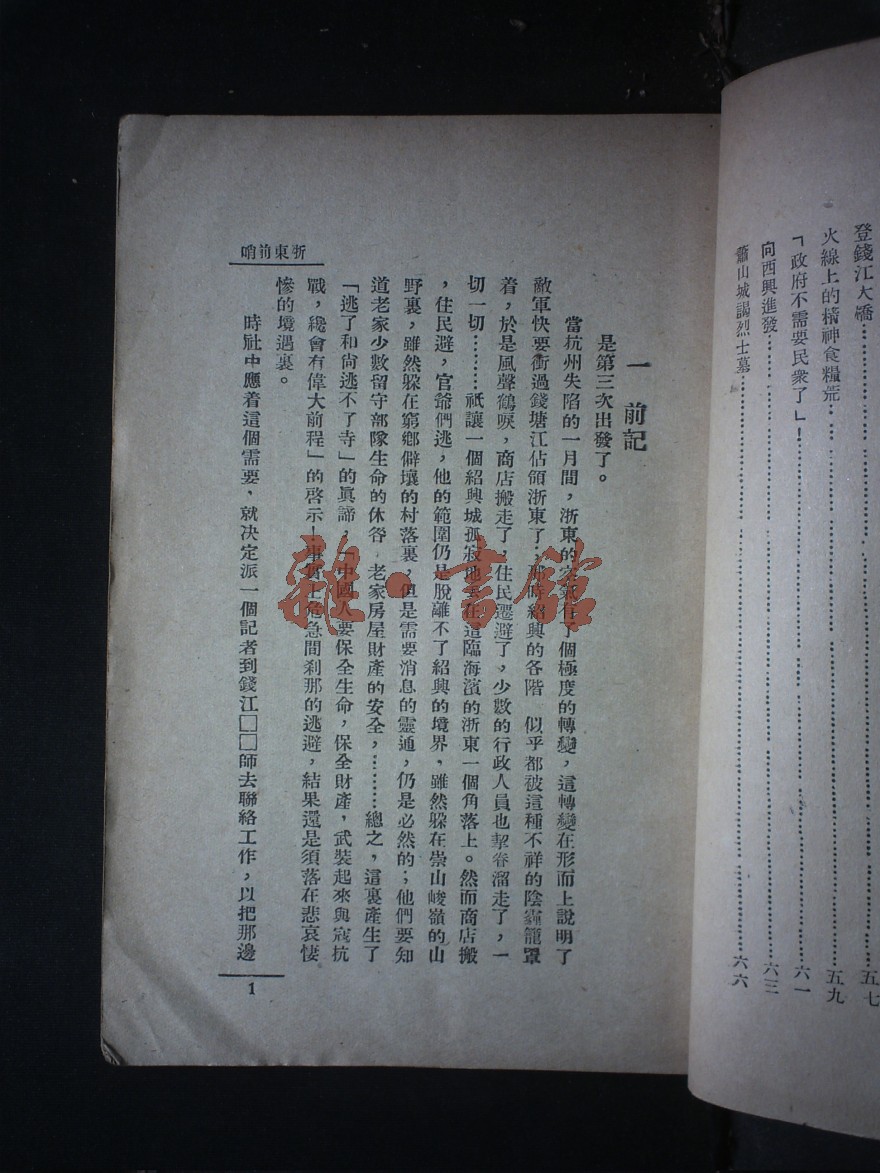 登錢江大橋……………………五七
火線上的精神食糧荒……………………五九
「政府不需要民衆了」!……………………六一
向西興進發……………………六三
蕭山城謁烈士墓……………………六六
一 前記
是第三次出發了。
當杭州失陷的一月間,浙東的空氣有了個極度的轉變,這轉變在形而上說明了
敵軍快要衝過錢塘江佔領浙東了;那時紹興的各階 似乎都被這種不祥的陰霾籠罩
着,於是風聲鶴唳,商店搬走了,住民遷避了,少數的行政人員也挈眷溜走了,一
切一切………祇讓一個紹興城孤寂地 在這臨海濱的浙東一個角落上。然而商店搬
,住民避,官爺們逃,他的範圍仍是脫離不了紹興的境界,雖然躱在崇山峻嶺的山
野裏,雖然躱在窮鄉僻壤的村落裏,但是需要消息的靈通,仍是必然的;他們要知
道老家少數留守部隊生命的休咎,老家房屋財產的安全,………總之,這裏產生了
「逃了和尚逃不了寺」的眞諦,「中國人要保全生命,保全財產,武裝起來與寇抗
戰,纔會有偉大前程」的啓示!事實上危急間刹那的逃避,結果還是須落在悲哀悽
慘的境遇裏。
時社中應着這個需要,就決定派一個記者到錢江□□師去聯絡工作,以把那邊
浙東前哨
1
雜·書館